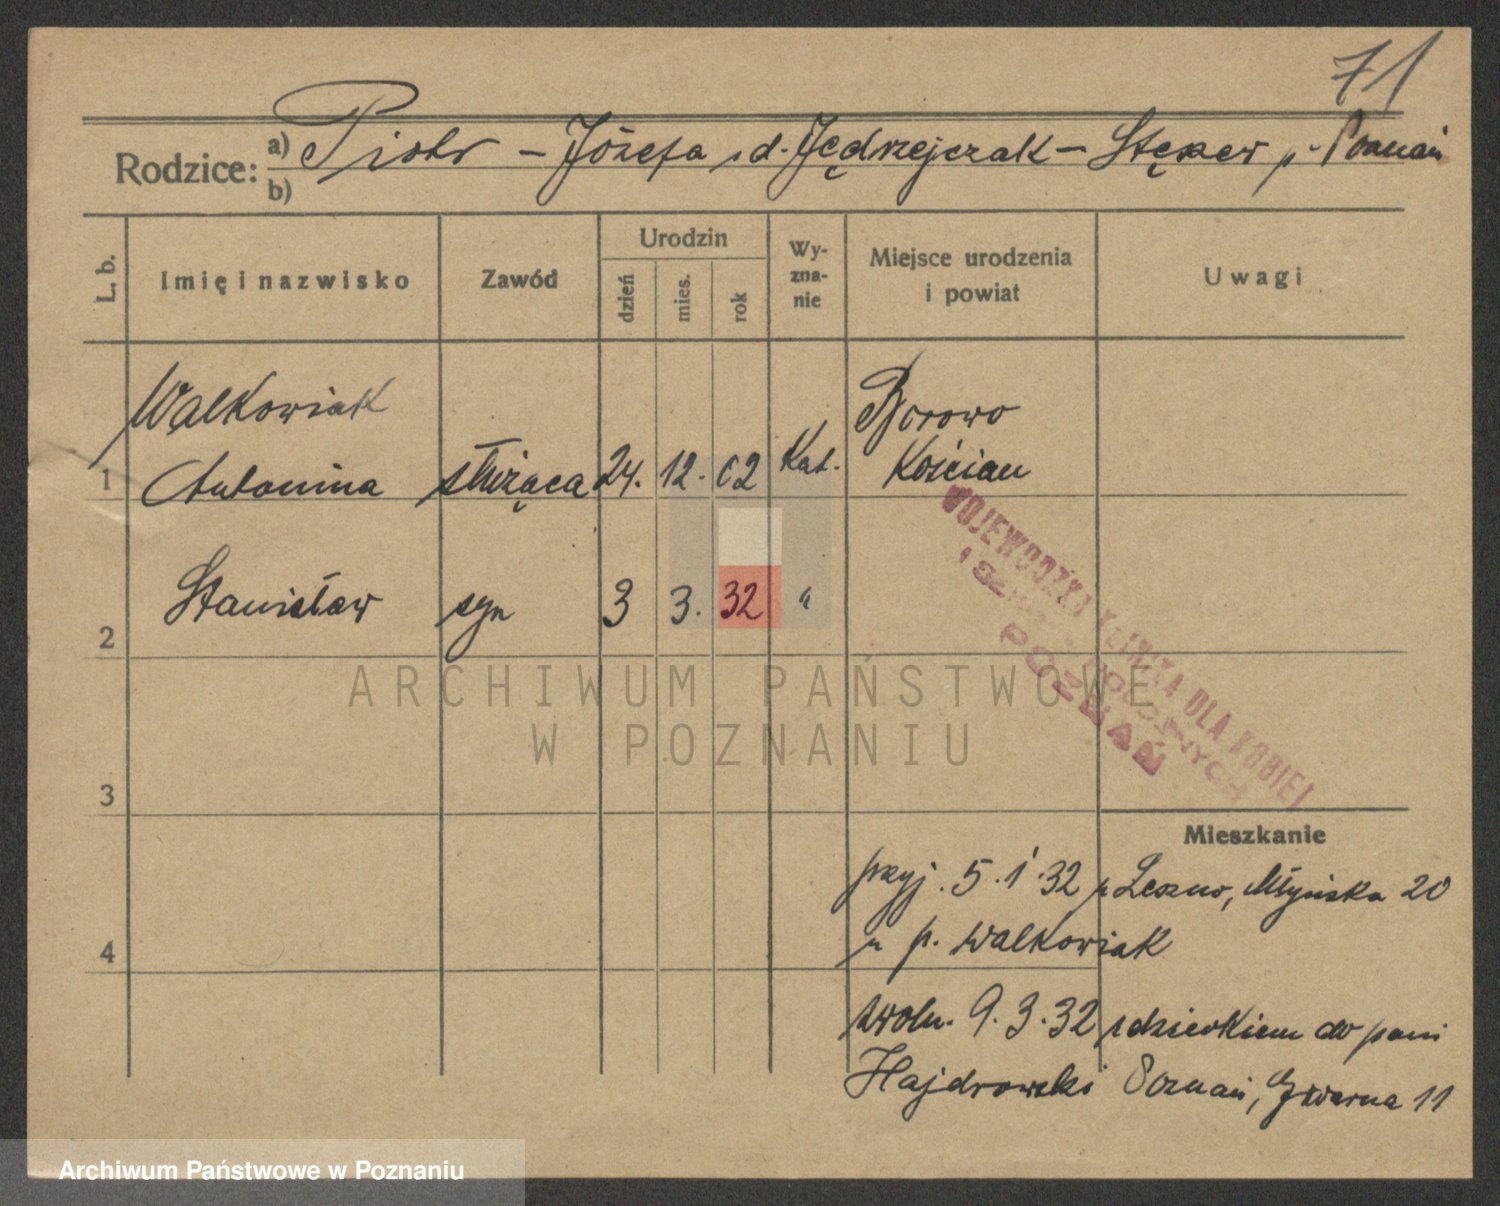 71
Rodzice: a) Piotr – Józefa z d. Jędrzejczak – Stęszew p. Poznań
b)
L. b.
Imię i nazwisko
Zawód
Urodzin
dzień
mies.
rok
Wy-
zna-
nie
Miejsce urodzenia
i powiat
Uwagi
Walkowiak
Borowo
1 Antonina służąca 24. 12. 02 Kat. Kościan
2 Stanisław syn 3 3. 32 "
WOJEWÓDZKA KLINIKA DLA KOBIET
POZNAŃ
ARCHIWUM PAŃSTWOWE
W POZNANIU
3
Mieszkanie
przyj. 5.1.32 z Leszno, Młyńska 20
4 u p. Walkowiak
zwoln. 9.3.32 z dzieckiem do pani
Hajdrowski Poznań, Gwarna 11
Archiwum Państwowe w Poznaniu